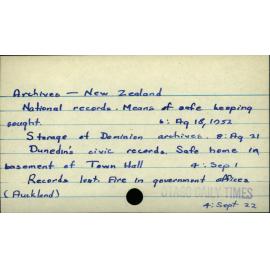 Archives — New Zealand
National records. Means of safe keeping
sought. 6: Ag 18, 1952
Storage of Dominion archives. 8: Ag 21
Dunedin's civic records. Safe home in
basement of Town Hall 4: Sep 1
Records lost. Fire in government offices
(Auckland) OTAGO DAILY TIMES
4: Sept 22